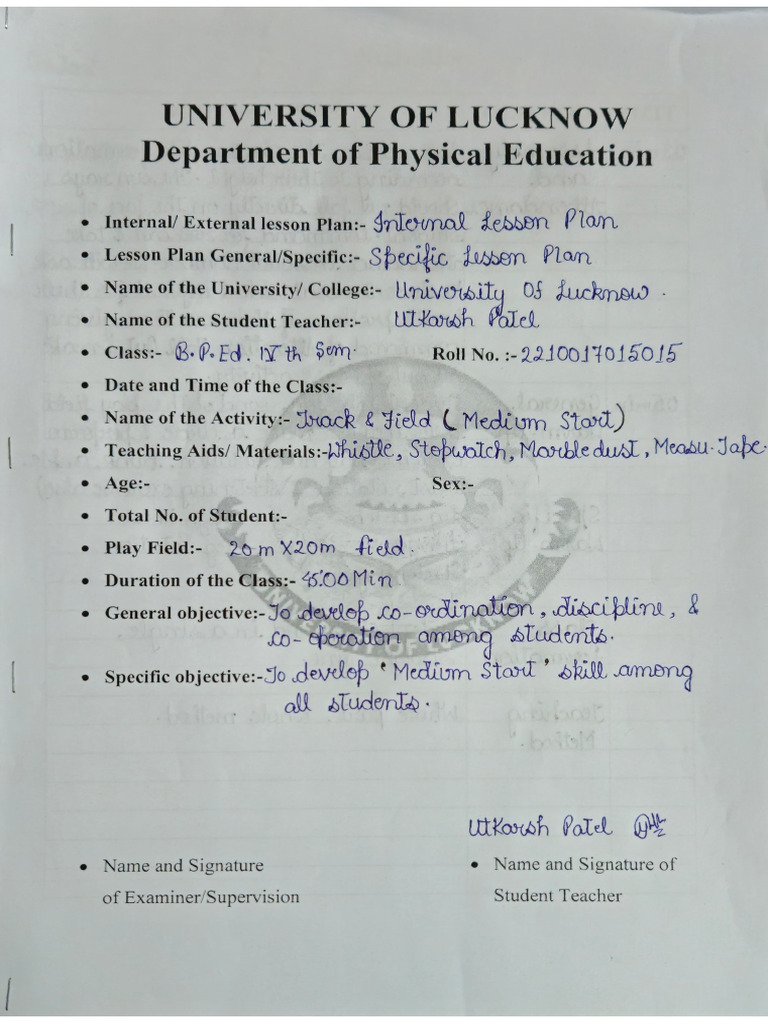 UNIVERSITY OF LUCKNOW
Department of Physical Education
• Internal/ External lesson Plan:- Internal Lesson Plan
• Lesson Plan General/Specific:- Specific Lesson Plan
• Name of the University/ College:- University Of Lucknow.
• Name of the Student Teacher:- Utkarsh Patel
• Class:- B.P.Ed. IVth Sem Roll No. :- 2210017015015
• Date and Time of the Class:-
• Name of the Activity:- Track & Field (Medium Start)
• Teaching Aids/ Materials:- Whistle, Stopwatch, Marble dust, Measu. Tape.
• Age:- Sex:-
• Total No. of Student:-
• Play Field:- 20m X 20m field.
• Duration of the Class:- 45:00 Min
• General objective:- To develop co-ordination, discipline, &
co-operation among students.
• Specific objective:- To develop 'Medium Start' skill among
all students.
UNIVERSITY OF LUCKNOW
Utkarsh Patel
• Name and Signature • Name and Signature of
of Examiner/Supervision Student Teacher